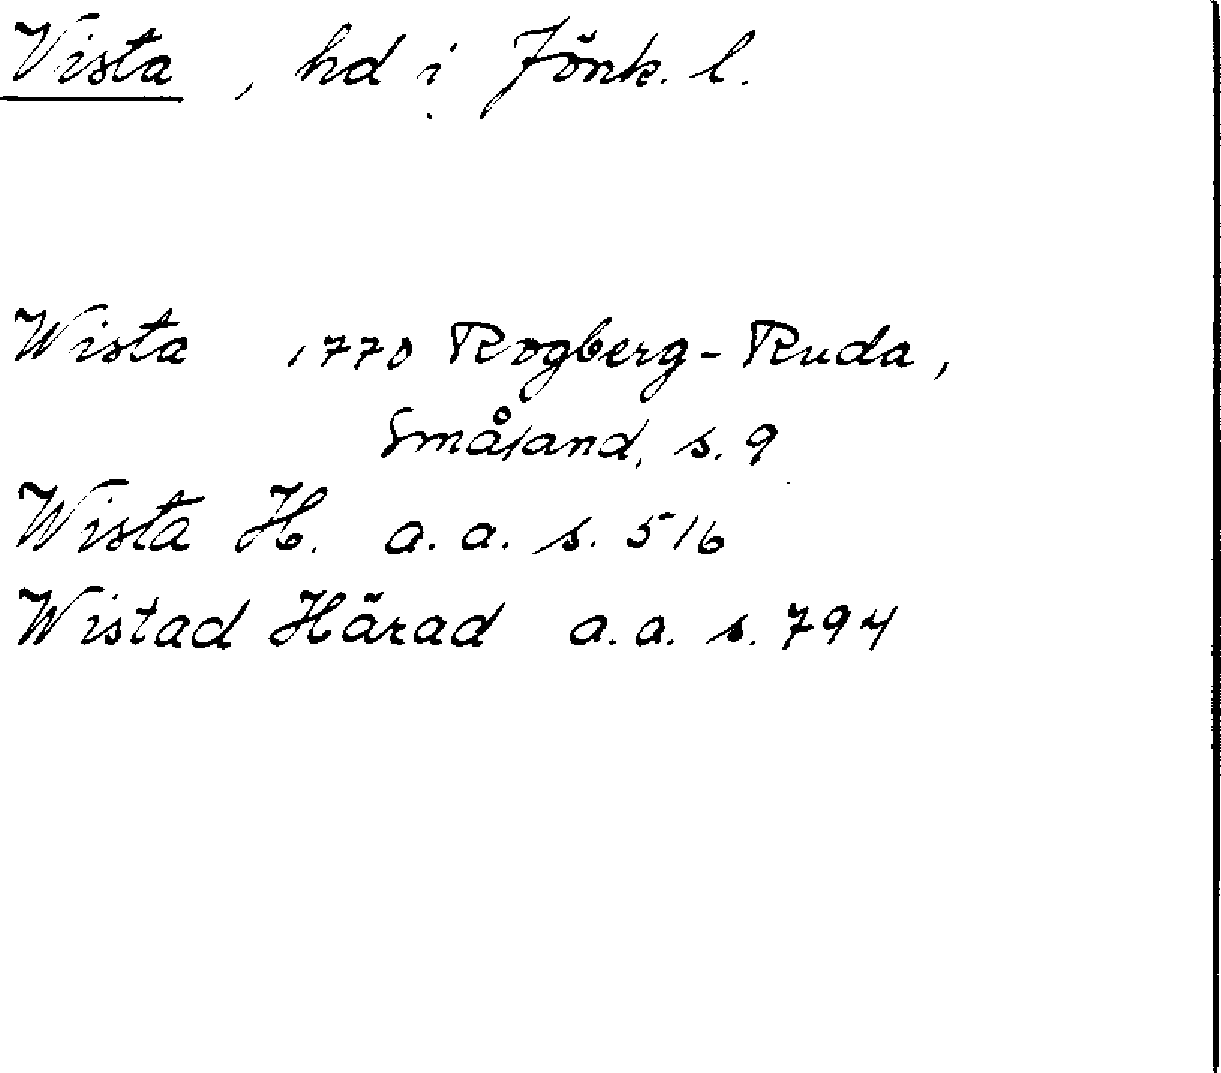 Vista, hd i Jönk. l.
Wista 1770 Rogberg-Ruda,
Småland, s. 9
Wista H. a.a. s. 516
Wistad Härad a.a. s. 794